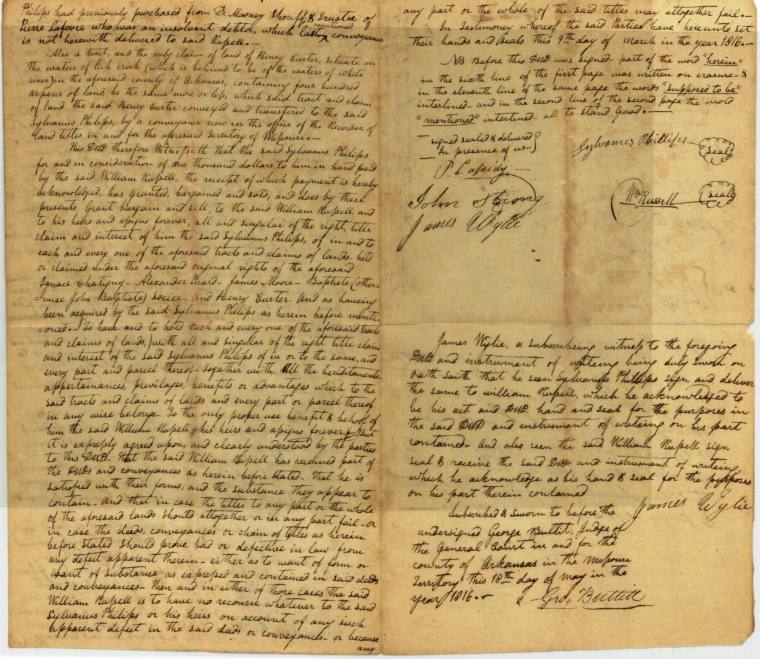 Philips had previously purchased from D. Mooney Sheriff & Trustee of
Piere Lefevre who was an insolvent debtor, which latter conveyance
is not herewith delivered to said Rupell.
Also a tract, and the only claim of land of Henry Curter, situate on
the waters of lick creek (which is believed to be of the waters of white
river) in the aforesaid county of Arkansas, containing four hundred
arpens of land, be the same more or less, which said tract and claim
of land the said Henry Curter conveyed and transferred to the said
Sylvanus Philips, by a conveyance now in the office of the Recorder of
land titles in and for the aforesaid Territory of Missouri.
This Deed therefore Witnesseth that the said Sylvanus Philips
for and in consideration of one thousand dollars to him in hand paid
by the said William Russell, the receipt of which payment is hereby
acknowledged, has granted, bargained and sold, and does by these
presents, Grant bargain and sell, to the said William Russell and
to his heirs and assigns forever, all and singular of the right, title
claim and interest of him the said Sylvanus Philips, of in and to
each and every one of the aforesaid tracts and claims of lands, held
or claimed under the aforesaid original rights of the aforesaid
Ignace Chatigny - Alexander Beard - James Moore - Baptiste (other-
wise John Baptiste) Socier - and Henry Curter. And as having
been acquired by the said Sylvanus Philips as herein before menti-
oned - To have and to hold each and every one of the aforesaid tracts
and claims of lands, with all and singular of the right title claim
and interest of the said Sylvanus Philips of in or to the same, and
every part and parcel thereof - together with all the hereditaments,
appertainances, privilages, benefits or advantages which to the
said tracts and claims of lands and every part or parcel thereof
in any wise belongs - To the only proper use benefit & behoof of
him the said William Russell & his heirs and assigns forever. But
it is expressly agreed upon, and clearly understood by the parties
to this Deed. that the said William Russell has received part of
the deeds and conveyances as herein before stated. that he is
satisfied with their forms, and the substance they appear to
contain. And that in case the titles to any part or the whole
of the aforesaid lands should altogether or in any part fail - or
in case the deeds, conveyances or chain of titles as herein
before stated should prove bad or defective in law from
any defect apparent therein - either as to want of form or
want of substance as expressed and contained in said deeds
and conveyances - then and in either of those cases the said
William Russell is to have no recourse whatever to the said
Sylvanus Philips or his heirs on account of any such
apparent defect in the said deeds or conveyances - or because
any
any part or the whole of the said titles may altogether fail.
In Testimony whereof the said Parties have hereunto set
their hands and Seals this 9th day of March in the year 1816.
NB Before this Deed was signed part of the word "herein"
in the sixth line of the first page was written on erasure - &
in the eleventh line of the same page the words "supposed to be"
interlined - and in the second line of the second page the word
"mentioned" interlined all to stand good.
signed sealed & delivered
In presence of us
P. Cassidy
John Strong
James Wylie
Sylvanus Phillips seal
Wm Russell seal
James Wylie, a subscribeing witness to the foregoing
Deed and instrument of writeing being duly sworn on
oath saith that he seen Sylvanus Phillips sign and deliver
the same to william Russell, which he acknowledged to
be his act and Deed. hand and seal for the purposes in
the said Deed and instrument of writeing on his part
contained. And also seen the said William Russell sign
seal & receive the said Deed and instrument of writeing
which he acknowledge as his hand & seal for the purposes
on his part therein contained
James Wylie
Subscribed & sworn to before the
undersigned George Buttit, Judge of
the General Court in and for the
county of Arkansas in the Missouri
Territory this 18th day of may in the
year 1816.
Geo. Buttitt